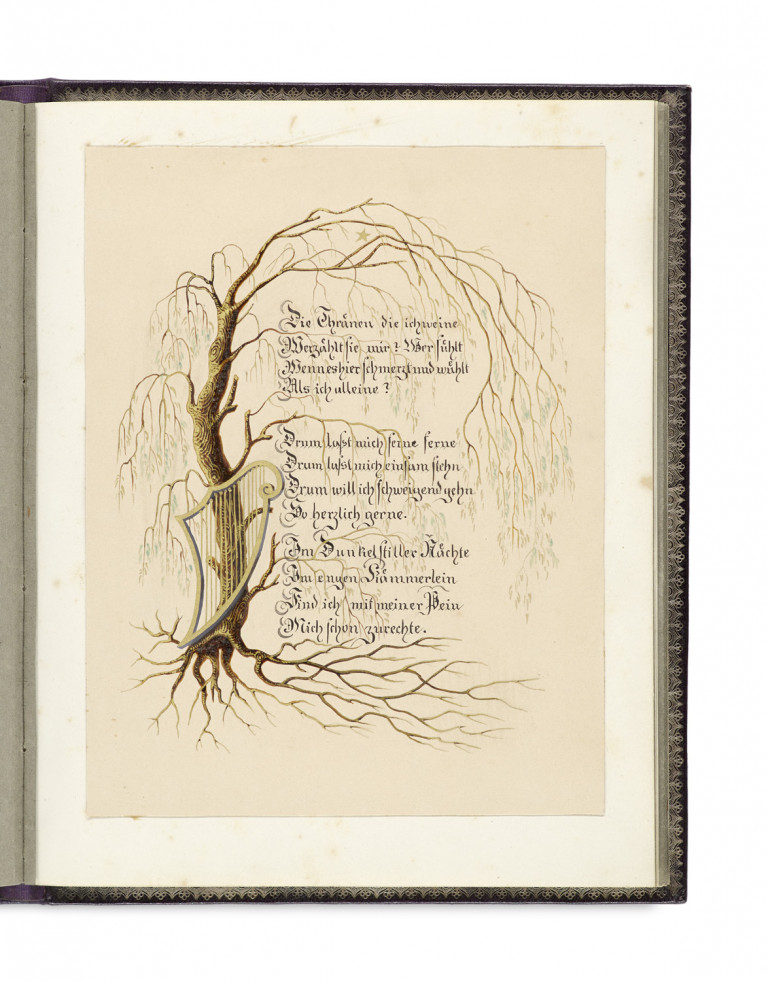 Die Thränen die ich weine
Wer zählt sie mir? Wer fühlt
Wenn es hier schmerzt und wühlt
Als ich alleine?
Drum laßt mich ferne ferne
Drum laßt mich einsam stehn
Drum will ich schweigend gehn
So herzlich gerne.
Im Dunkel stiller Nächte
Im engen Kämmerlein
Find ich mit meiner Pein
Mich schon zurechte.